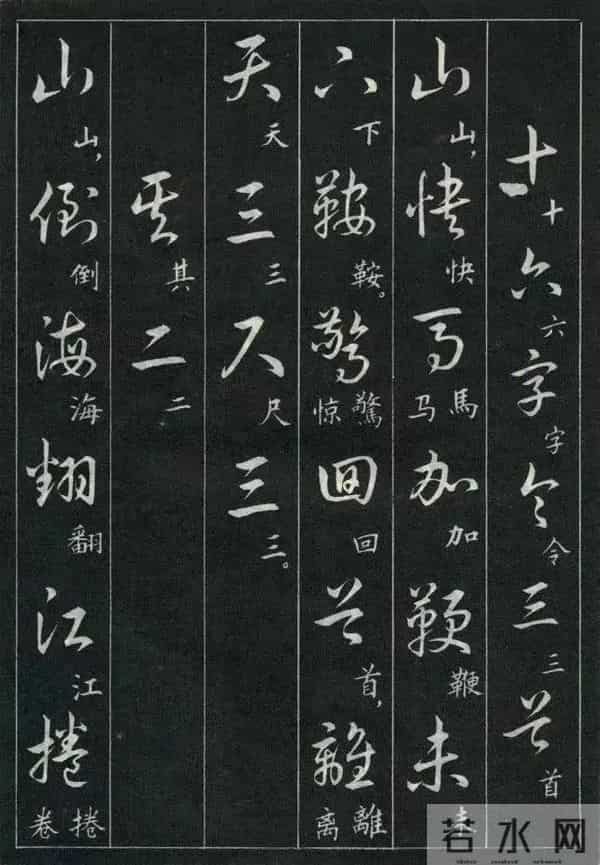 十六字令三首
十六字令三首
山快馬加鞭未
山，快馬马加鞭未
下鞍驚回首離
下鞍。驚惊回首，離离
天三尺三
天三尺三。
其二
其二
山倒海翻江捲
山，倒海翻江捲卷
若水网